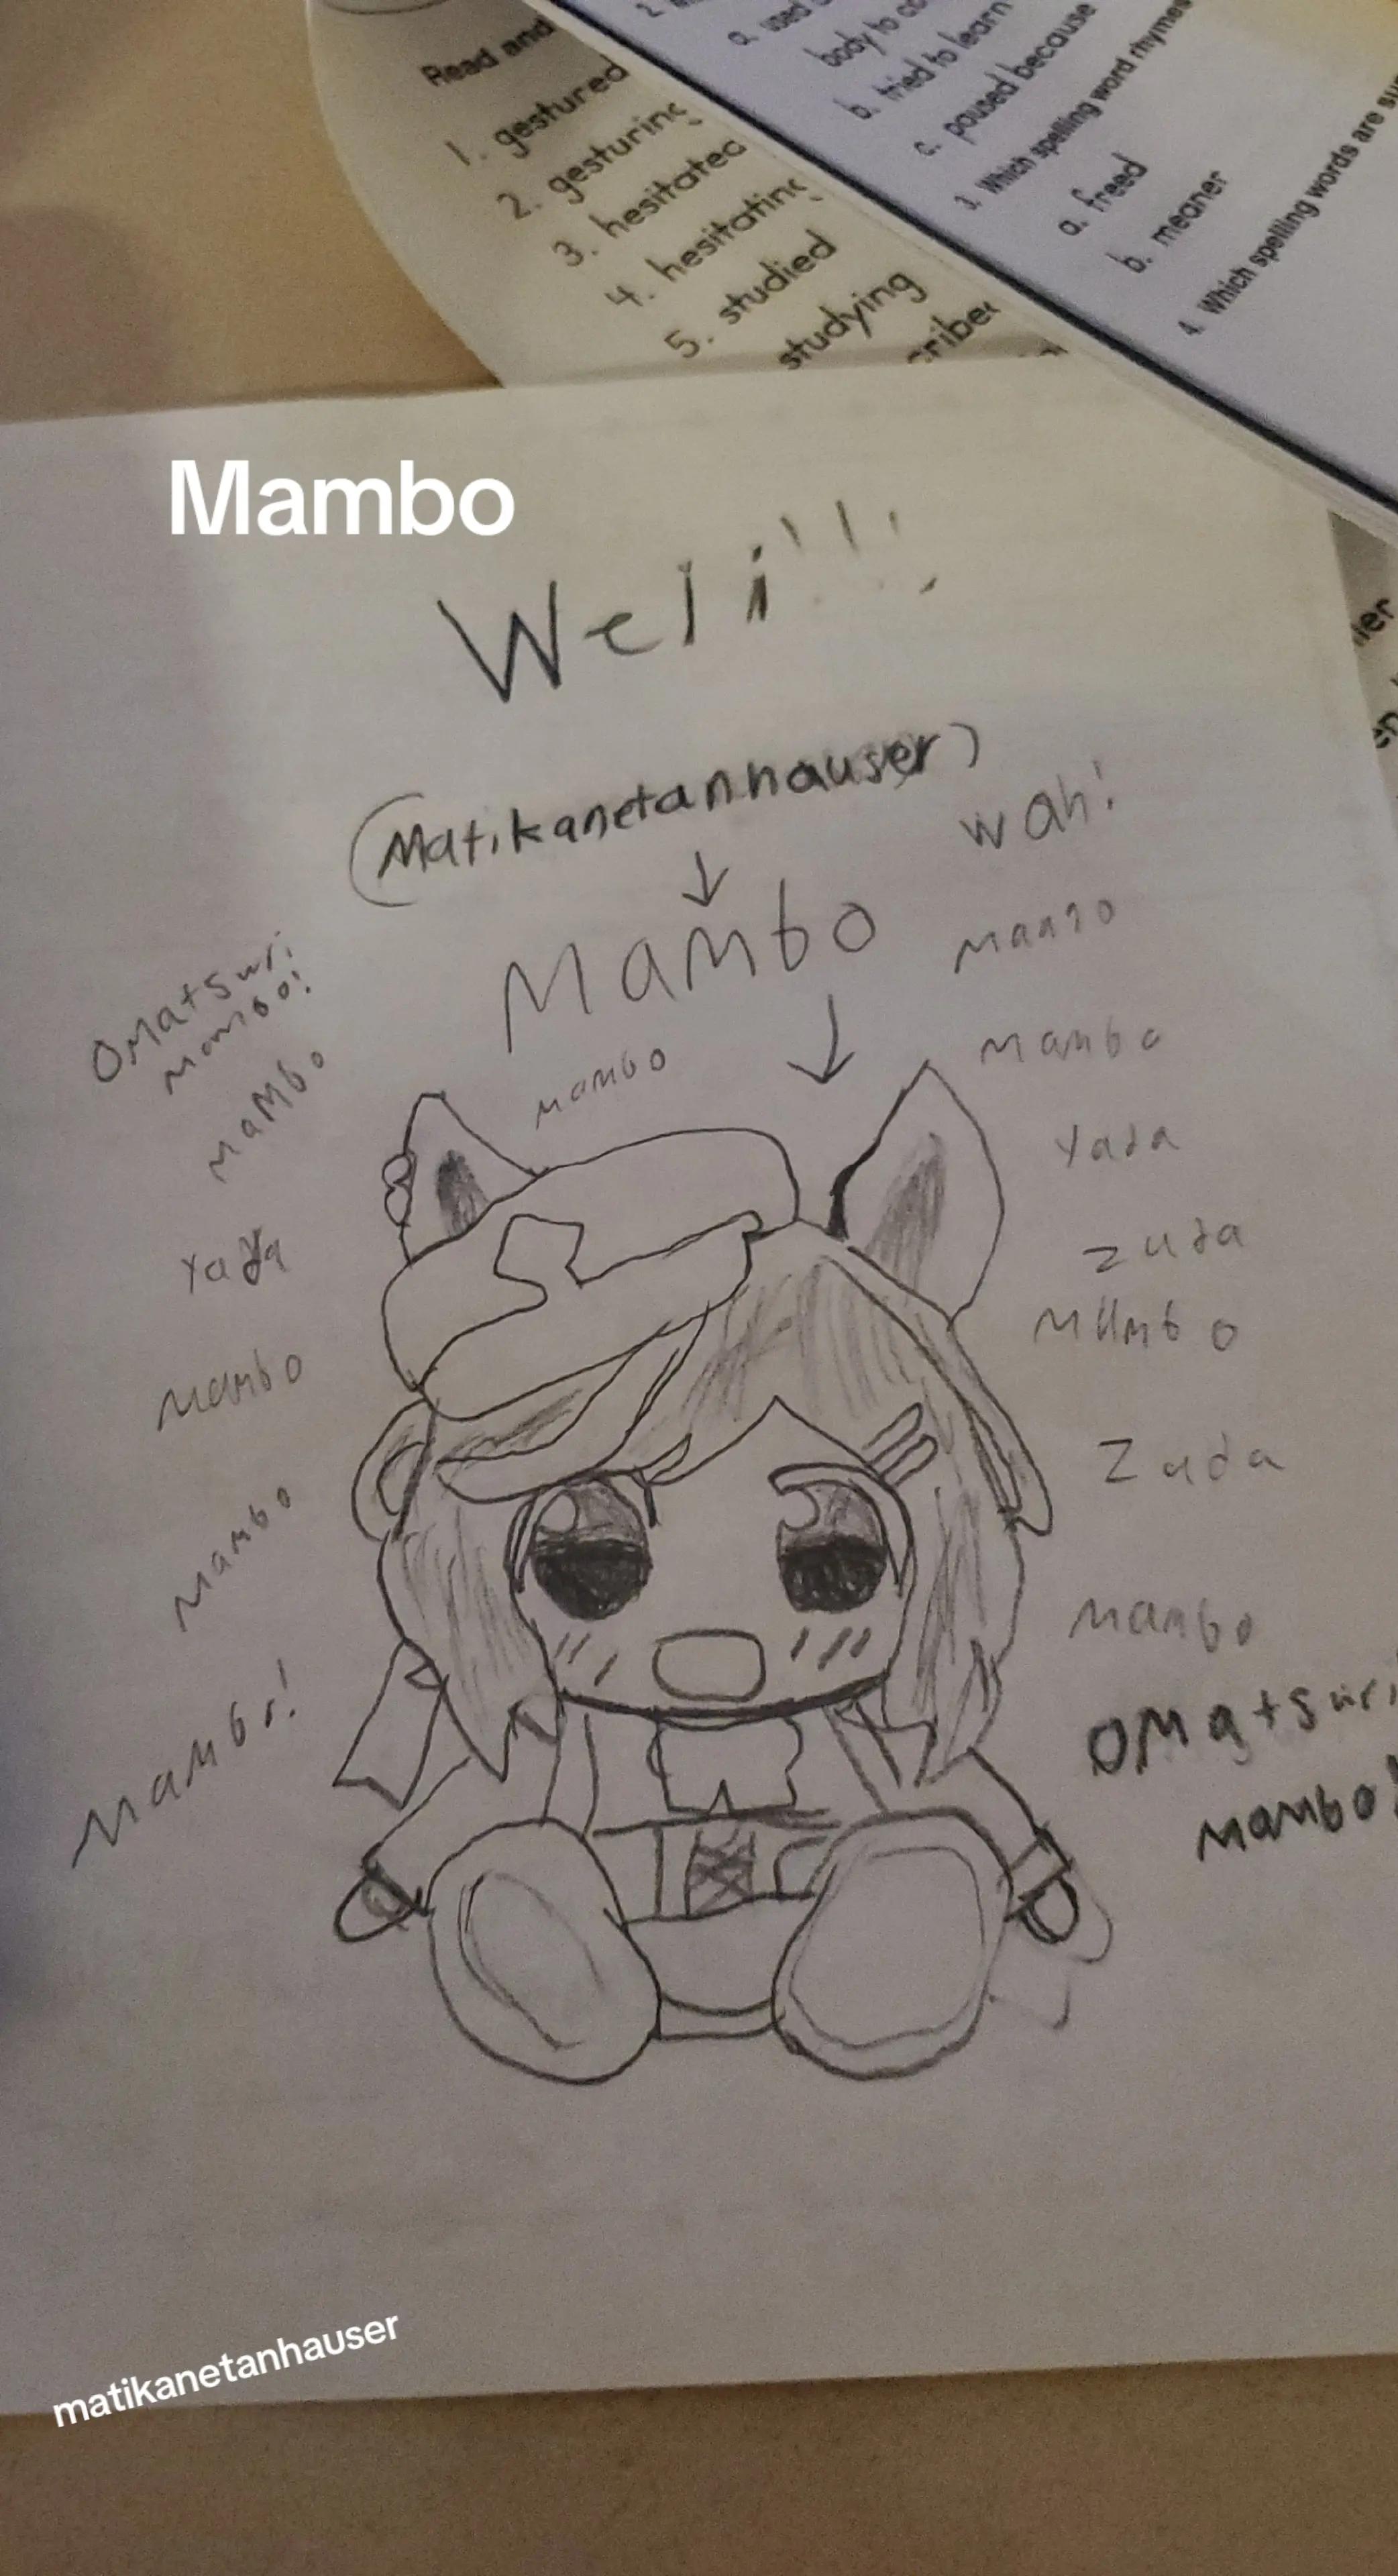 Read and
1. gestured
2. gesturing
3. hesitated
4. hesitating
5. studied
studying
2.
a. used
body to
b. tried to learn
c. paused because
3. Which spelling word rhymes
a. freed
b. meaner
4. Which spelling words are
Mambo
Weli!!!
(Matikanetanhauser)
wah!
Mambo
Omatsuri
Mambo!
Mambo
Mambo
Mambo
Yada
Yada
Zuda
Mambo
Mambo
Mambo
Zuda
Mambo
Mambo!
Mambo
Omatsuri
Mambo!
matikanetanhauser